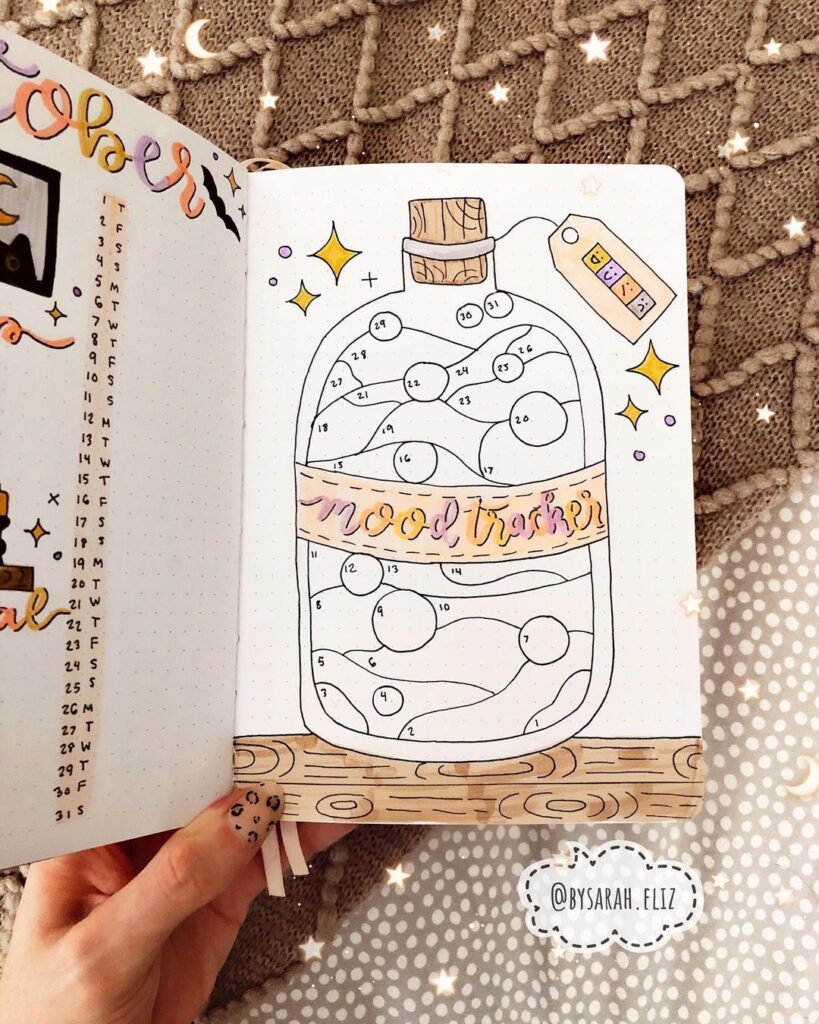 ober
1 T
2 F
3 S
4 S
5 M
6 T
7 W
8 T
9 F
10 S
11 S
12 M
13 T
14 W
15 T
16 F
17 S
18 S
19 M
20 T
21 W
22 T
23 F
24 S
25 S
26 M
27 T
28 W
29 T
30 F
31 S
al
29 30 31
28 26
27 21 22 24 25
23
18 19 20
15 16 17
mood tracker
11 12 13 14
8 9 10
7
5 6
3 4
2 1
@BYSARAH.ELIZ